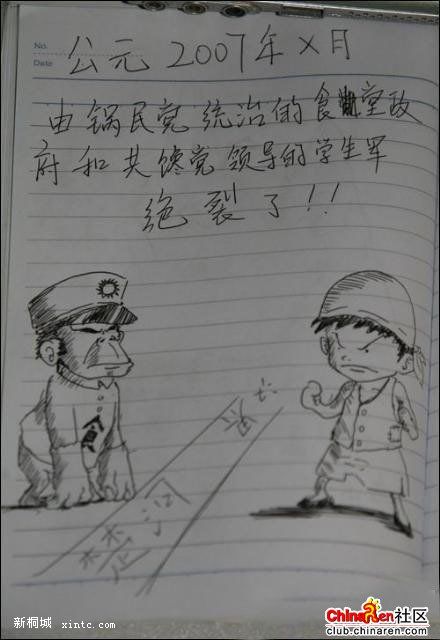 No.
Date
公元 2007年 X月
由锅民党统治的食堂政
府和共馋党领导的学生军
绝裂了!!
楚河
新桐城 xintc.com
ChinaRen社区
club.chinaren.com